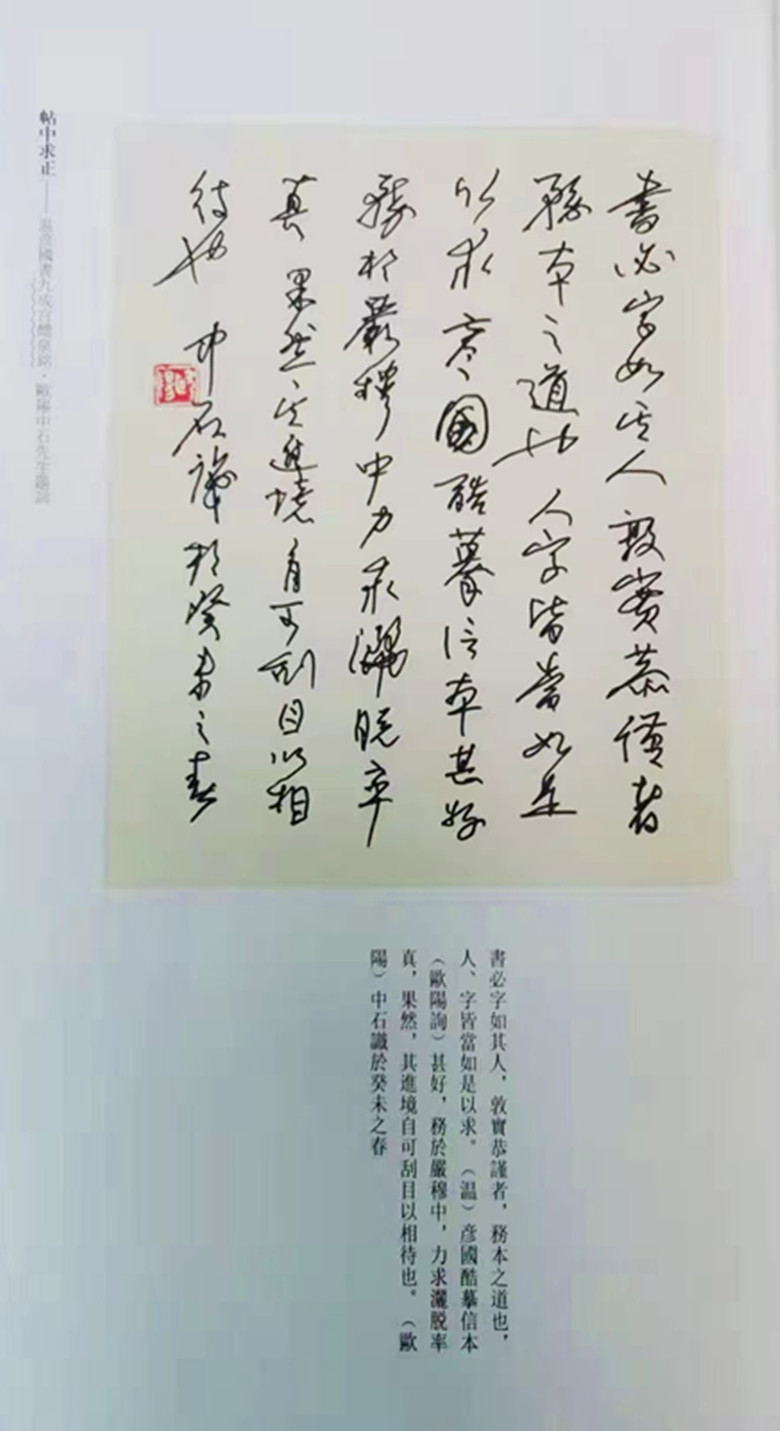 書必字如其人敦實恭謹者
務本之道也人字皆當如是
以求彦國酷摹信本甚好
務於嚴穆中力求灑脱率
真果然其進境自可刮目以相
待也 中石識於癸未之春
書必字如其人，敦實恭謹者，務本之道也，
人、字皆當如是以求。（温）彦國酷摹信本
（歐陽詢）甚好，務於嚴穆中，力求灑脱率
真，果然，其進境自可刮目以相待也。（歐
陽）中石識於癸未之春
帖中求正——温彦國書九成宫醴泉銘·歐陽中石先生題詞